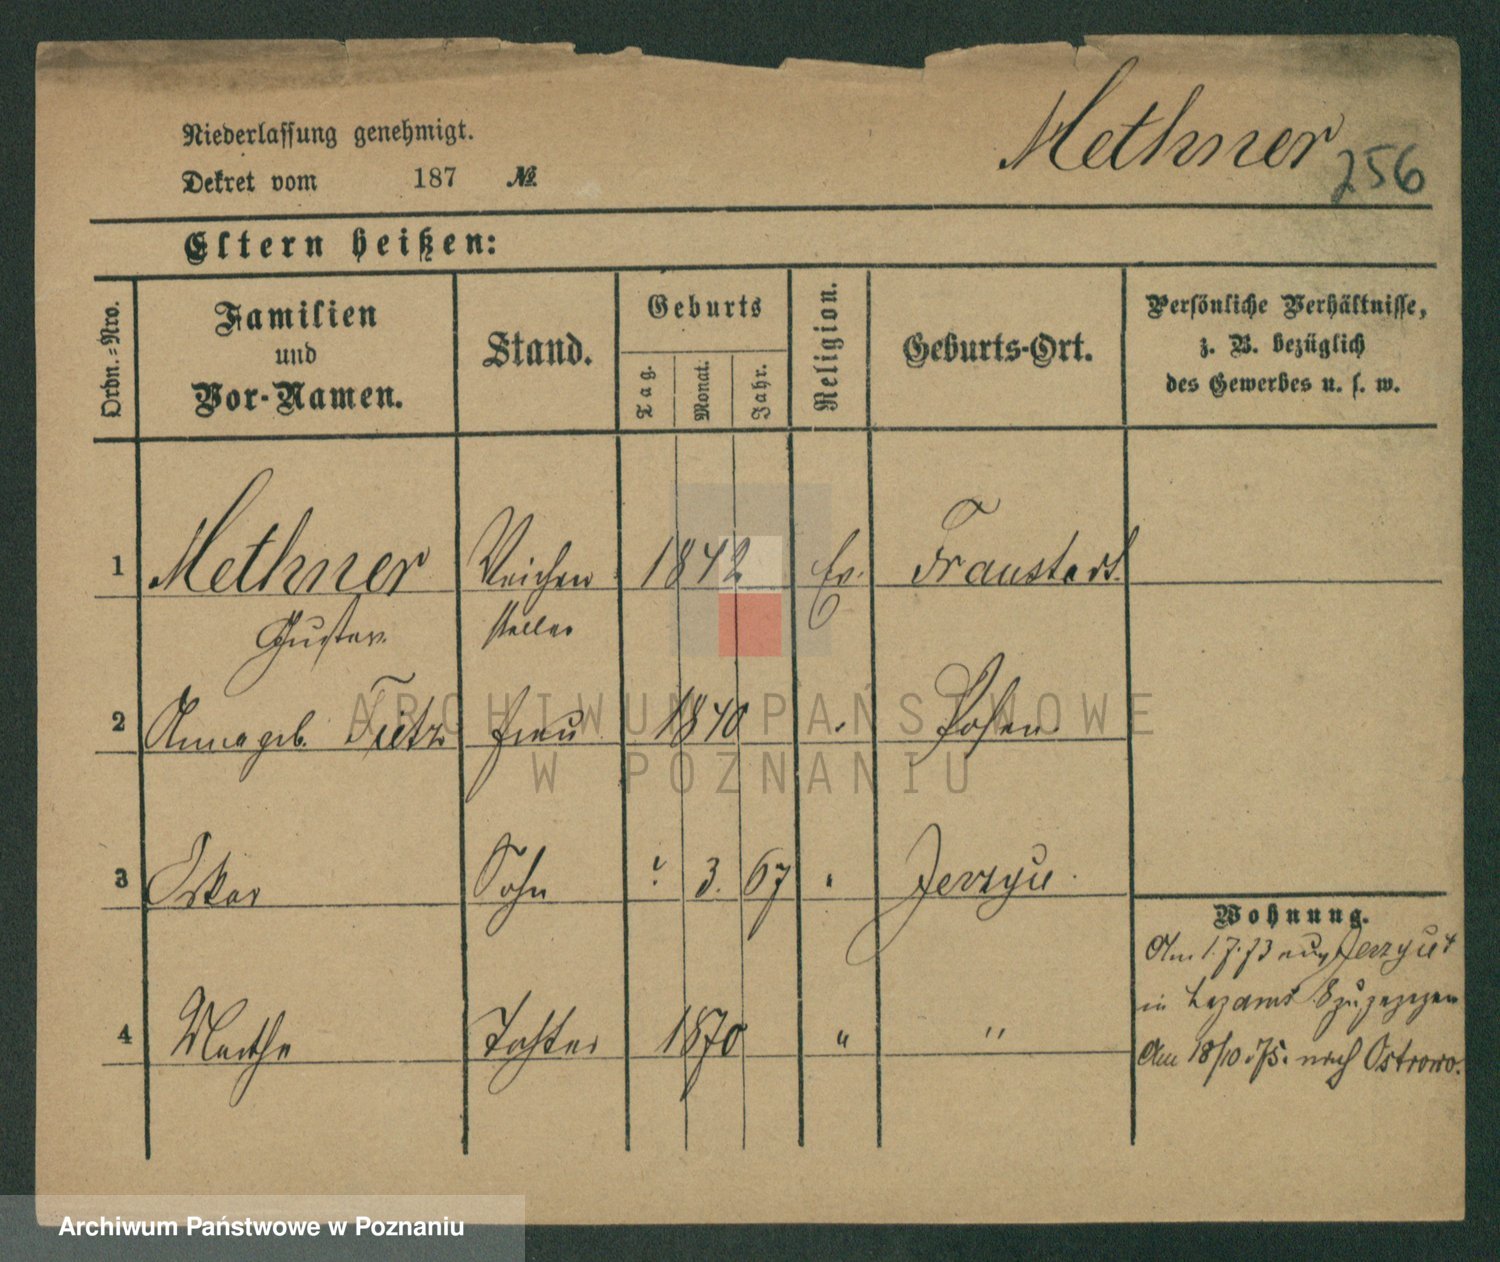 Niederlassung genehmigt.
Dekret vom 187 №
Methner 256
Eltern heißen:
Ordn.-Nro.
Familien
und
Vor-Namen.
Stand.
Geburts
Tag.
Monat.
Jahr.
Religion.
Geburts-Ort.
Persönliche Verhältnisse,
z. B. bezüglich
des Gewerbes u. s. w.
1 Methner Weichen 1842 Ev. Fraustadt.
Gustav. steller
2 Anna geb. Tietz Frau 1840 " Posen.
3 Oskar Sohn ? 3. 67 " Jerzyce.
Wohnung.
Am 1.7.73 aus Jerzyce
in zugezogen
4 Marthe Tochter 1870 " "
Am 18/10.75. nach Ostrowo.
ARCHIWUM PAŃSTWOWE
W POZNANIU
Archiwum Państwowe w Poznaniu